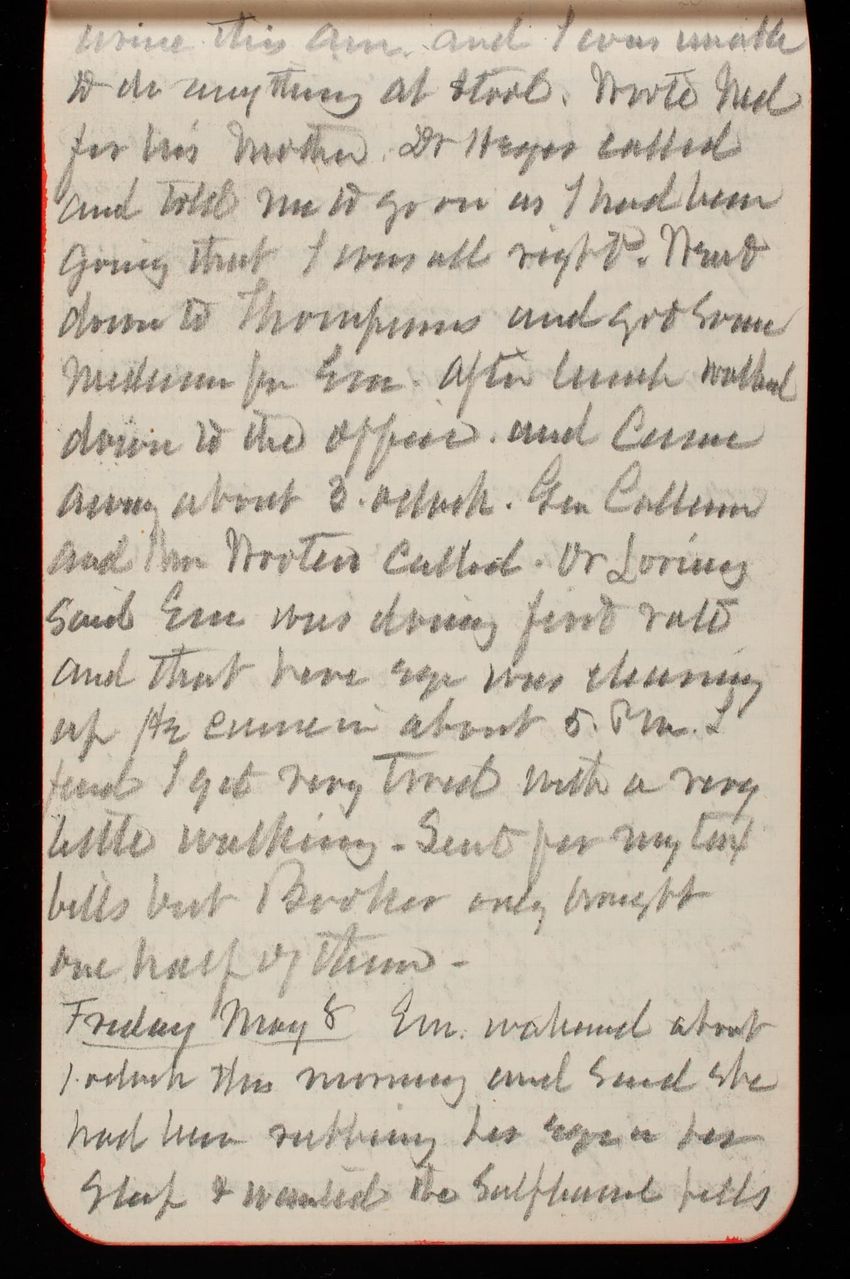 urine this am. and I was unable
to do anything at stool. Wrote Ned
for his Mother. Dr Heger called
and told me to go on as I had been
going that I was all right. Went
down to Thompsons and got some
Medicine for Em. After lunch walked
down to the office. and Came
away about 3. oclock. Gen Cullum
and Wooten Called. Dr Loring
said Em was doing first rate
and that her eye was clearing
up He came in about 5. P.M. I
find I get very tired with a very
little walking - Sent for my tax
bills but Booker only brought
one half of them -
Friday May 8 Em. wakened about
1. oclock this morning and said she
had been rubbing her eye in her
Sleep & wanted the Sulphonal pills